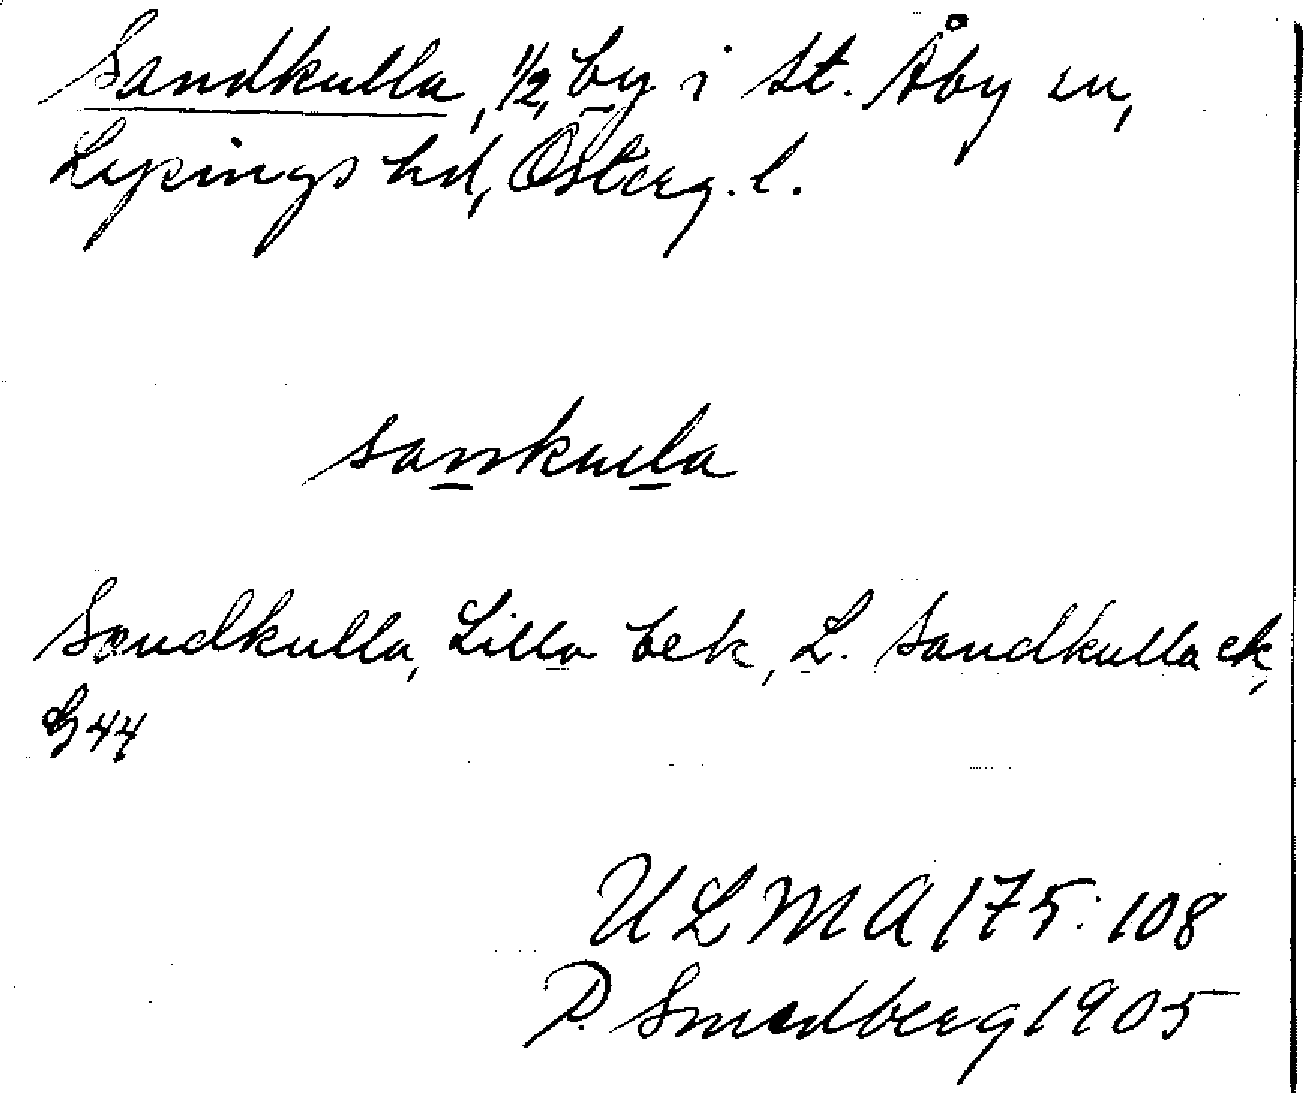 Sandkulla, 1/2, by i St. Åby sn,
Lysings hd, Österg. l.
sankulla
Sandkulla, Lilla bek, L. Sandkulla ek,
G 44
ULMA 175:108
P. Smedberg 1905